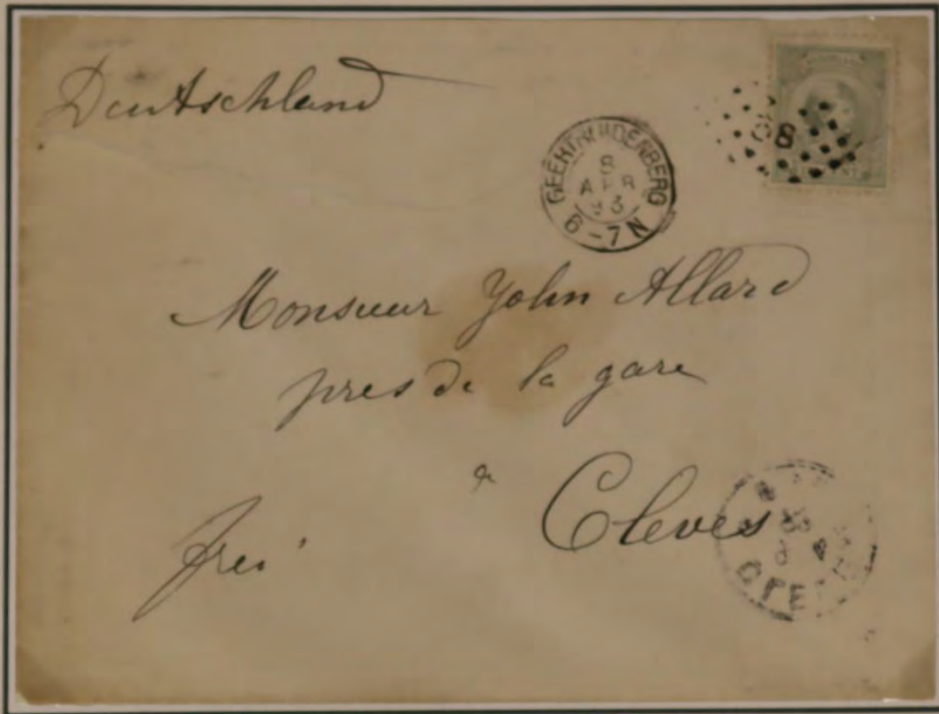 Deutschland
GEERTRUIDENBERG
8
APR
93
6-7N
8
Monsieur John Allard
pres de la gare
a Cleves
frei